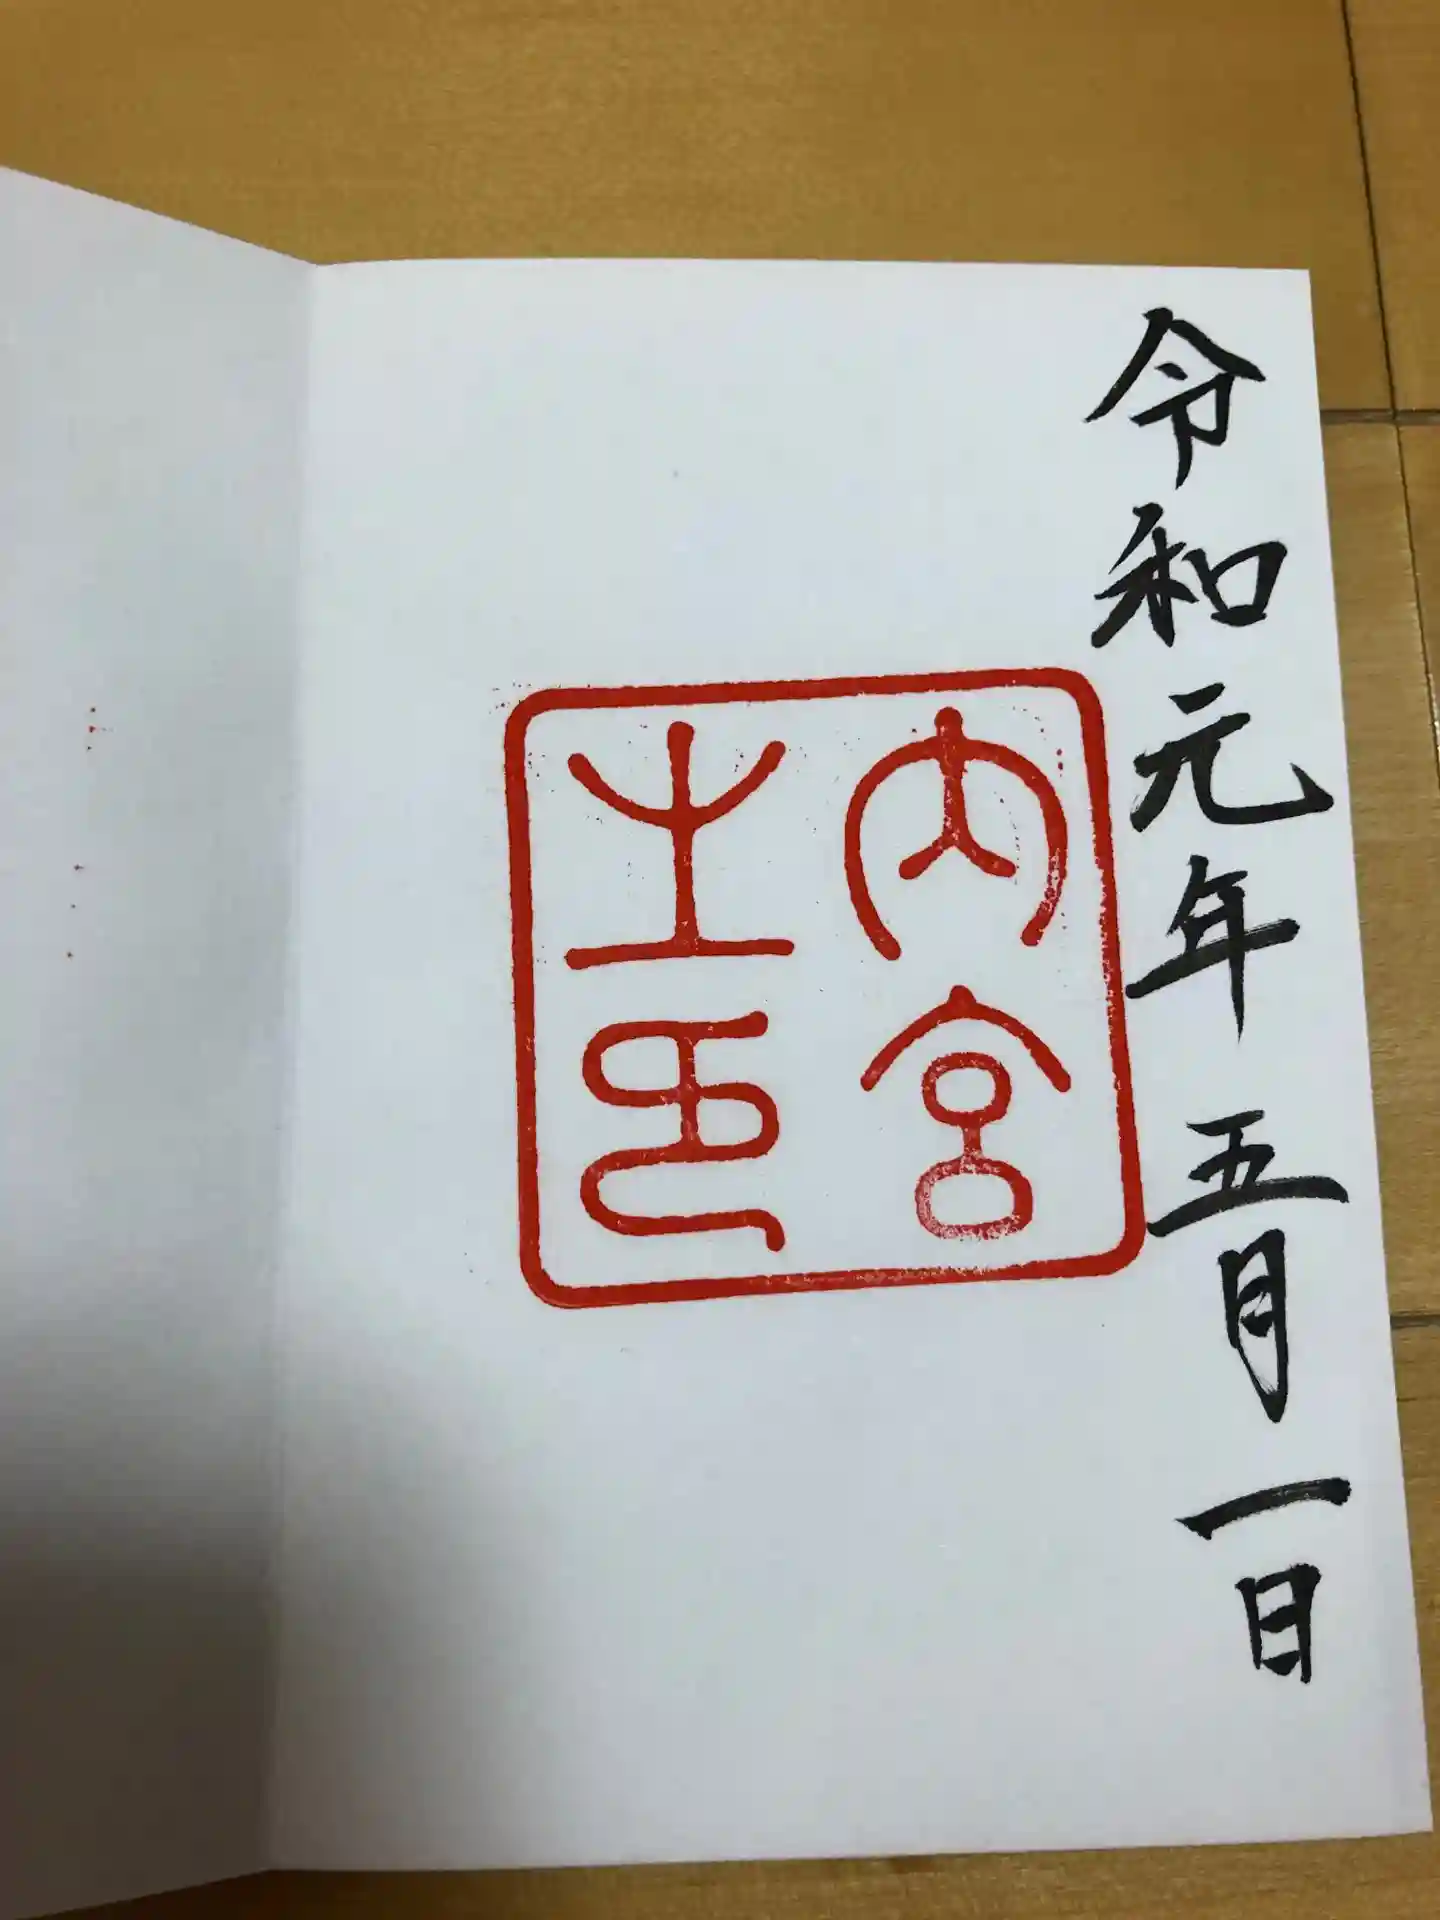 令和元年 五月一日
内宮
之印